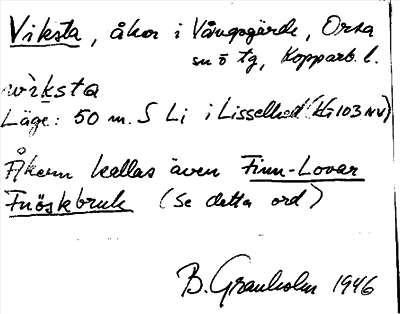 Viksta, åker i Vångsgärde, Orsa
sn o tg, Kopparb. l.
wiksta
Läge: 50 m. S Li i Lisselhed (kG103NV)
Åkern kallas även Finn-Lovar
Fnöskbruk (Se detta ord)
B. Granholm 1946